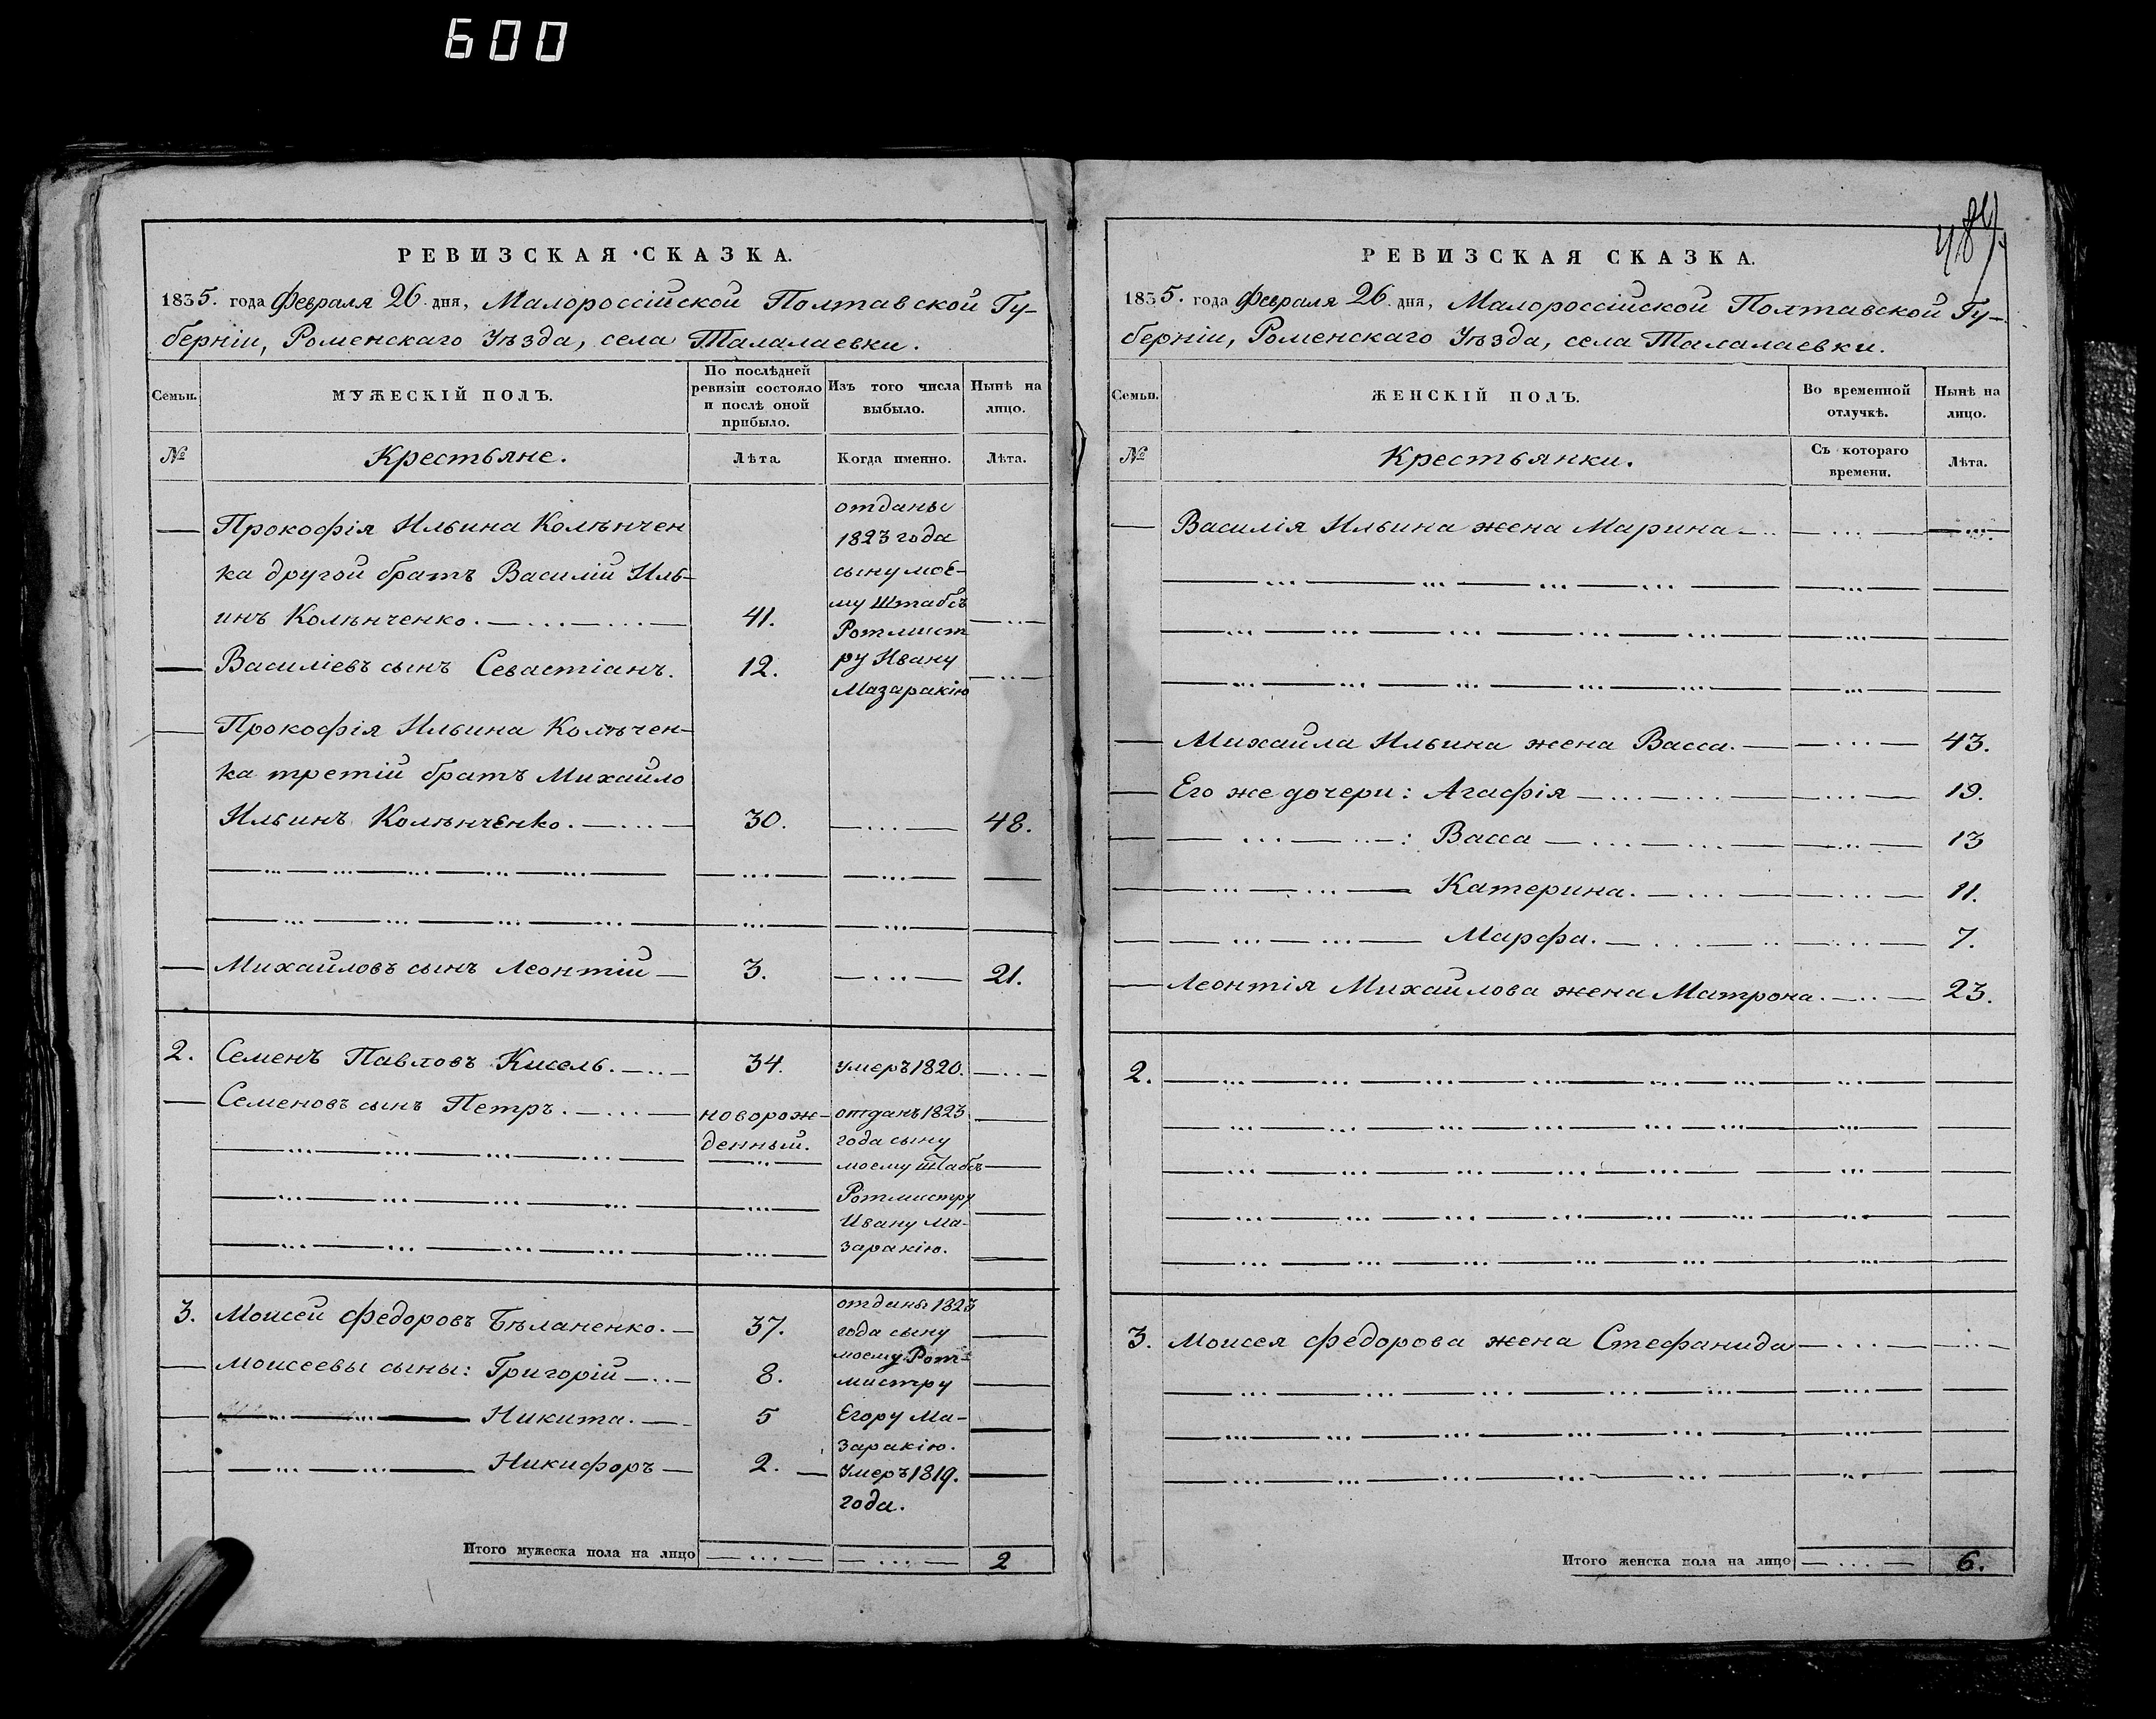 600
РЕВИЗСКАЯ СКАЗКА.
1835. года Февраля 26. дня, Малороссійской Полтавской Гу-
берніи, Роменскаго Уѣзда, села Талалаевки.
Семьи.
МУЖЕСКІЙ ПОЛЪ.
По послѣдней
ревизіи состояло
и послѣ оной
прибыло.
Изъ того числа
выбыло.
Нынѣ на
лицо.
№
Крестьяне.
Лѣта
Когда именно.
Лѣта.
Прокофія Ильина Колѣнчен
ка другой братъ Василій Иль-
инъ Колѣнченко. 41.
Василіевъ сынъ Севастіанъ. 12.
отданы
1823 года
сыну мое-
му Штабсъ
Ротмист
ру Ивану
Мазаракію
Прокофія Ильина Колѣчен-
ка третій братъ Михайло
Ильинъ Колѣнченко. 30. 48.
Михайловъ сынъ Леонтій 3. 21.
2. Семенъ Павловъ Кисель. 34. умеръ 1820.
Семеновъ сынъ Петръ. новорож-
денный.
отданъ 1823
года сыну
моему Штабсъ
Ротмистру
Ивану Ма-
заракію.
3. Моисей Федоровъ Бѣланенко. 37.
Моисеевы сыны: Григорій 8.
Никита. 5
отданы 1823
года сыну
моему Рот-
мистру
Егору Ма-
заракію.
Никифоръ 2. Умеръ 1819.
года.
Итого мужеска пола на лицо 2
489.
РЕВИЗСКАЯ СКАЗКА.
1835. года Февраля 26. дня, Малороссійской Полтавской Гу-
берніи, Роменскаго Уѣзда, села Талалаевки.
Семьи.
ЖЕНСКІЙ ПОЛЪ.
Во временной
отлучкѣ.
Нынѣ на
лицо.
№
Крестьянки.
Съ котораго
времени.
Лѣта.
Василія Ильина жена Марина
Михайла Ильина жена Васса. 43.
Его же дочери: Агафія 19.
: Васса 13
Катерина. 11.
Марфа. 7.
Леонтія Михайлова жена Матрона. 23.
2.
3. Моисея Федорова жена Стефанида
Итого женска пола на лицо 6.